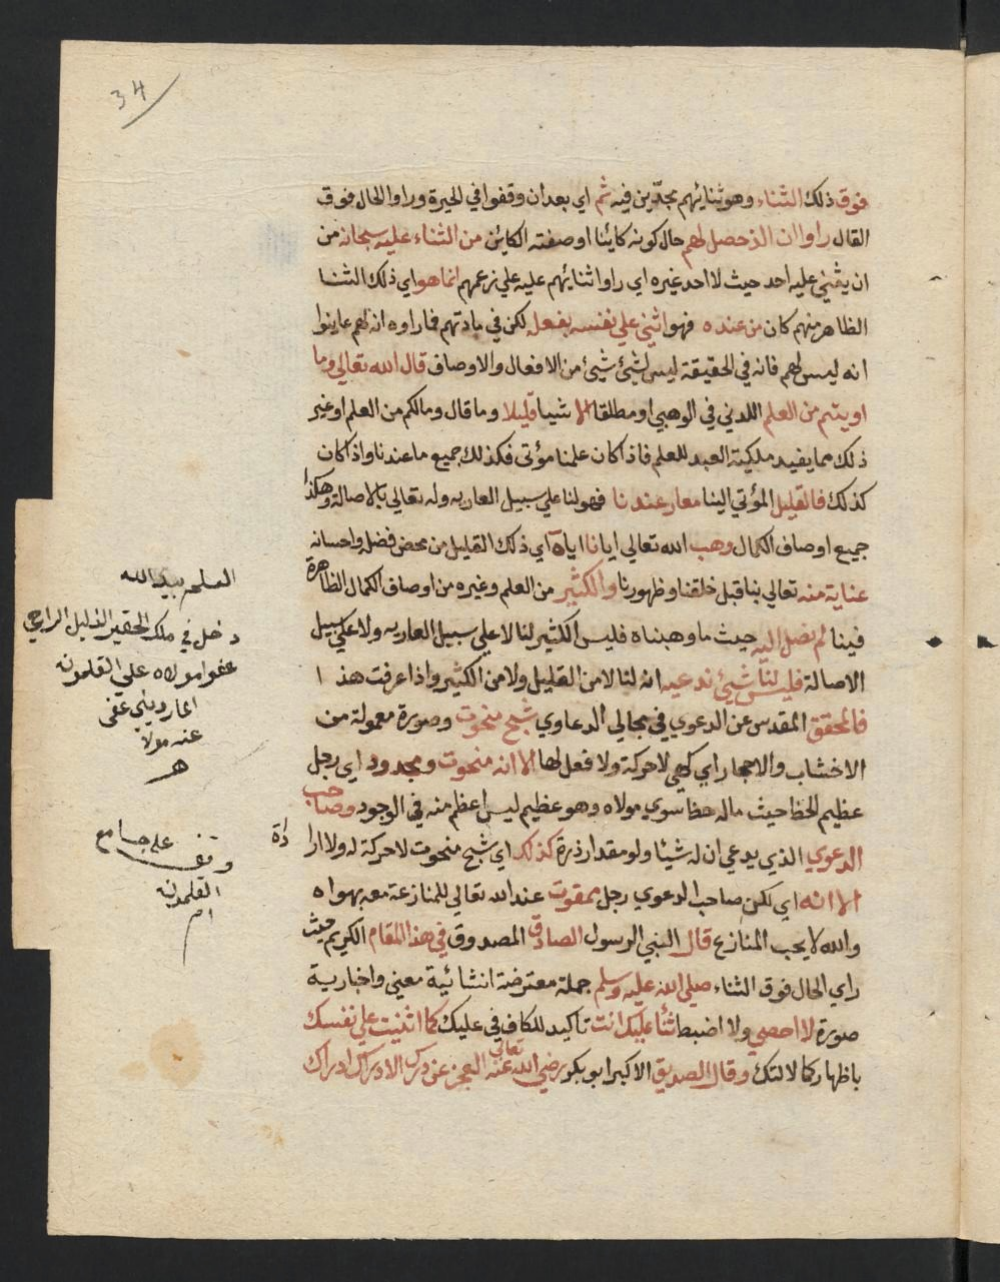 34
فوق ذلك الثناء وهو ثنايهم مجدّين فيه ثم اي بعد ان وقفوا في الحيرة وراوا الحال فوق
القال راوا ان الذ حصل لهم حال كونه كاينا او صفته الكاين من الثناء عليه سبحانه من
ان يثني عليه احد حيث لا احد غيره اي راوا ثنايهم عليه علي زعمهم انما هو اي ذلك الثنا
الظاهر منهم كان من عنده فهو اثني علي نفسه بفعل لكن في مادتهم فما راوه انه لهم عاينوا
انه ليس لهم فانه في الحقيقة ليس لشئ شئ من الافعال والاوصاف قال الله تعالي وما
اويتم من العلم اللدني في الوهبي او مطلقا الا شيا قليلا وما قال ومالكم من العلم او غير
ذلك مما يفيد ملكية العبد للعلم فاذا كان علمنا مؤتي فكذلك جميع ما عندنا واذا كان
كذلك فالقليل المؤتي الينا معار عندنا فهو لنا علي سبيل العاريه وله تعالي بالاصالة وهكذا
جميع اوصاف الكمال وهب الله تعالي ايانا اياه اي ذلك القليل من محض فضل واحسانه
عناية منه تعالي بنا قبل خلقنا وظهورنا والكثير من العلم وغيره من اوصاف الكمال الظاهرة
فينا لم نصل اليه حيث ما وهبناه فليس الكثير لنا لا علي سبيل العاريه ولا علي سبيل
الاصالة فليس لنا شيئ ندعيه انه لنا لا من القليل ولا من الكثير واذا عرفت هذا
فالمحقق المقدس عن الدعوي في مجالي الدعاوي شبح منحوت وصورة معمولة من
الاخشاب والاحجار اي كهي لا حركة ولا فعل لها الا انه منحوت ومجدود اي رجل
عظيم الحظ حيث ماله حظا سوي مولاه وهو عظيم ليس اعظم منه في الوجود وصاحب
الدعوي الذي يدعي ان له شيئا ولو مقدار ذرة كذلك اي شبح منحوت لا حركة له ولا ارا
دة
الا انه اي لكن صاحب الدعوي رجل ممقوت عند الله تعالي للمنازعة معه بهواه
والله لا يحب المنازع قال النبي الرسول الصادق المصدوق في هذا المقام الكريم حيث
راي الحال فوق الثناء صلي الله عليه وسلم جملة معترضة انشائية معني واخبارية
صورة لا احصي ولا اضبط ثناء عليك انت تاكيد للكاف في عليك كما اثنيت علي نفسك
باظهار كمالاتك وقال الصديق الاكبر ابو بكر رضي الله تعالي عنه العجز عن درك الادراك ادراك
العلم بيد الله
دخل في ملك الحقير الذليل الراجي
عفو مولاه علي القلمونه
المارديني عفي
عنه مولا
ه
وقف علي جامع
القلمونه
ام